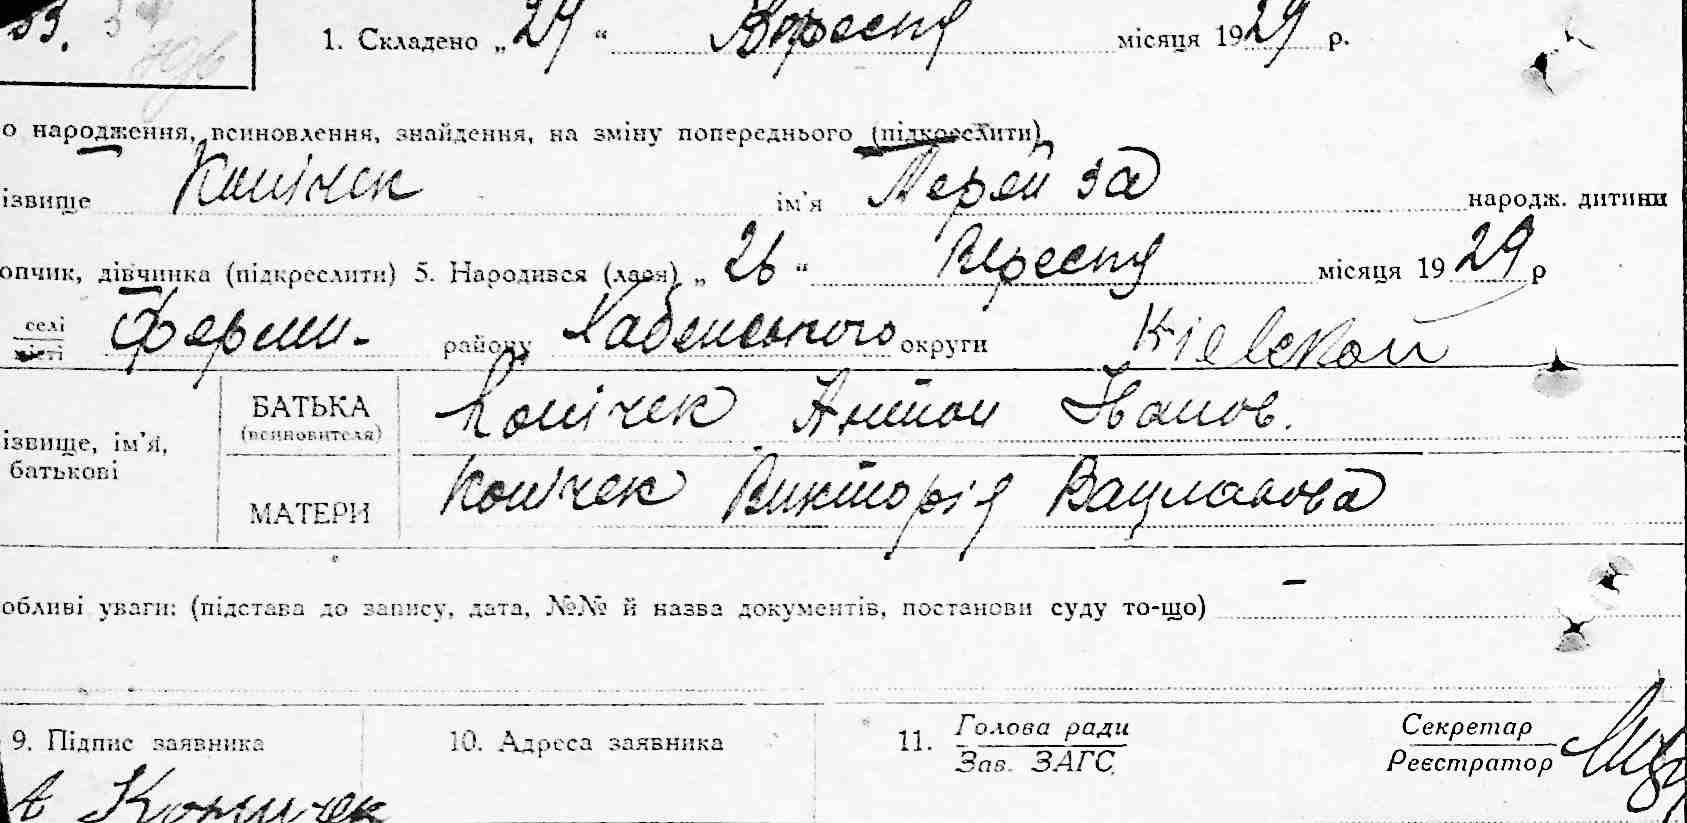 33.
1. Складено „ 29 “ Вересня місяця 1929 р.
о народження, всиновлення, знайдення, на зміну попереднього (підкреслити)
ізвище Конічек ім'я Терейза народж. дитини
опчик, дівчинка (підкреслити) 5. Народився (лася) „ 26 “ Вересня місяця 1929 р
селі
місті Ферми. району Хабенського округи Кіевской
БАТЬКА Конічек Антон Іванов.
(всиновителя)
ізвище, ім'я,
батькові
МАТЕРИ Конічек Викторія Вацлавова
обливі уваги: (підстава до запису, дата, №№ й назва документів, постанови суду то-що) –
9. Підпис заявника 10. Адреса заявника 11. Голова ради Секретар
Зав. ЗАГС, Реєстратор
А Коничек